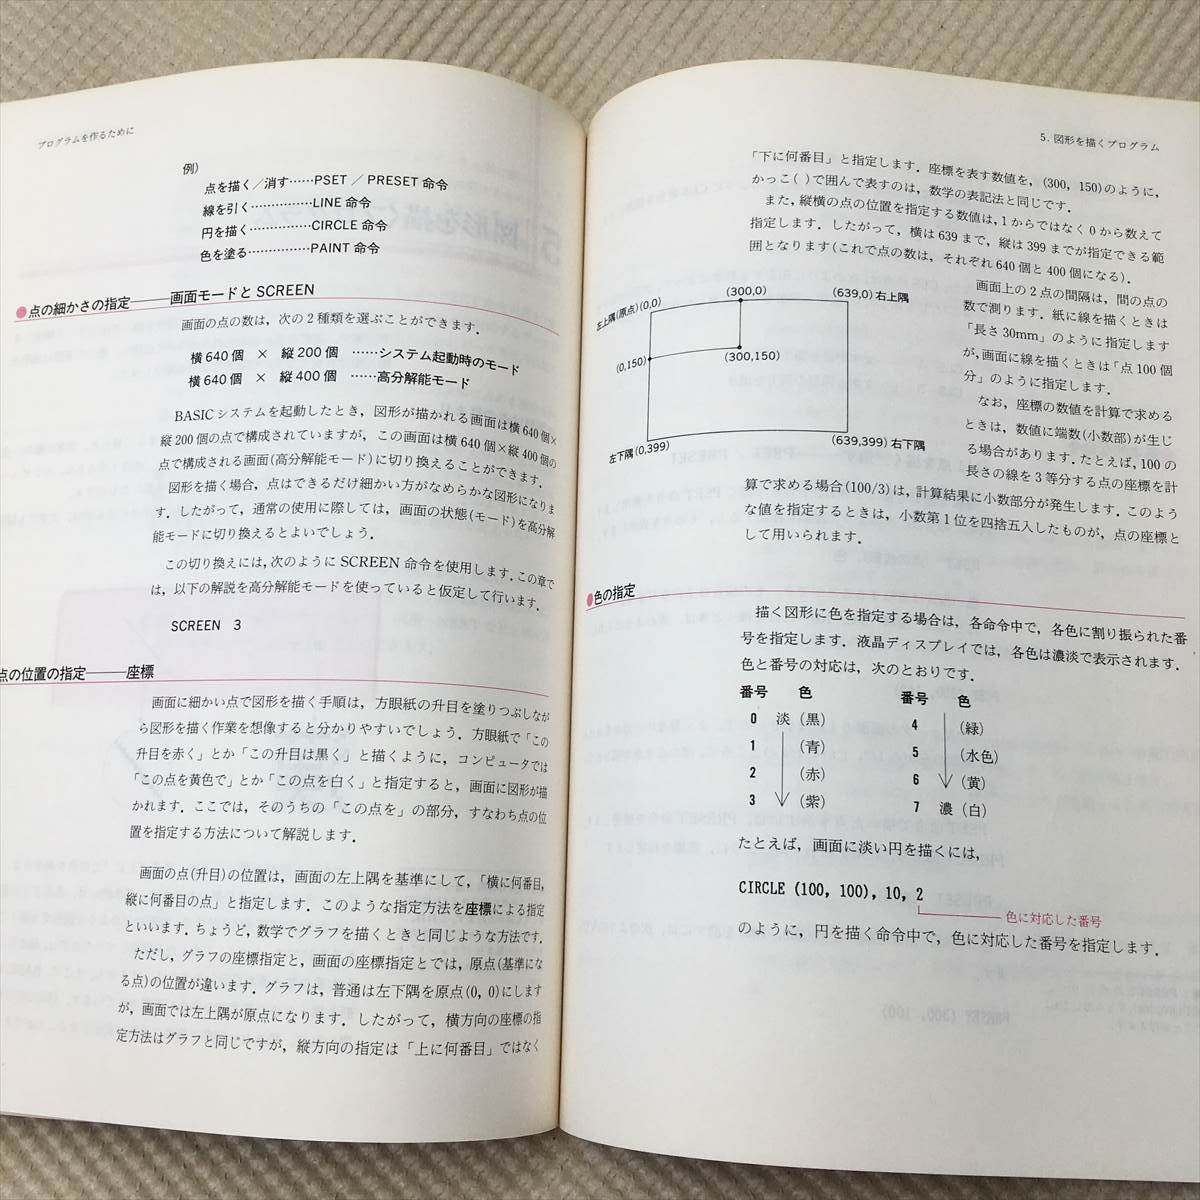 プログラムを作るために
例)
点を描く／消す……PSET / PRESET 命令
線を引く……………LINE 命令
円を描く……………CIRCLE 命令
色を塗る……………PAINT 命令
●点の細かさの指定――画面モードと SCREEN
画面の点の数は，次の2種類を選ぶことができます．
横640個 × 縦200個 ……システム起動時のモード
横640個 × 縦400個 ……高分解能モード
BASIC システムを起動したとき，図形が描かれる画面は横640個×
縦200個の点で構成されていますが，この画面は横640個×縦400個の
点で構成される画面(高分解能モード)に切り換えることができます．
図形を描く場合，点はできるだけ細かい方がなめらかな図形になりま
す．したがって，通常の使用に際しては，画面の状態(モード)を高分解
能モードに切り換えるとよいでしょう．
この切り換えには，次のように SCREEN 命令を使用します．この章で
は，以下の解説を高分解能モードを使っていると仮定して行います．
SCREEN 3
点の位置の指定――座標
画面に細かい点で図形を描く手順は，方眼紙の升目を塗りつぶしなが
ら図形を描く作業を想像すると分かりやすいでしょう．方眼紙で「この
升目を赤く」とか「この升目は黒く」と描くように，コンピュータでは
「この点を黄色で」とか「この点を白く」と指定すると，画面に図形が描
かれます．ここでは，そのうちの「この点を」の部分，すなわち点の位
置を指定する方法について解説します．
画面の点(升目)の位置は，画面の左上隅を基準にして，「横に何番目，
縦に何番目の点」と指定します．このような指定方法を座標による指定
といいます．ちょうど，数学でグラフを描くときと同じような方法です．
ただし，グラフの座標指定と，画面の座標指定とでは，原点(基準にな
る点)の位置が違います．グラフは，普通は左下隅を原点(0, 0)にします
が，画面では左上隅が原点になります．したがって，横方向の座標の指
定方法はグラフと同じですが，縦方向の指定は「上に何番目」ではなく
5. 図形を描くプログラム
「下に何番目」と指定します．座標を表す数値を，(300, 150)のように，
かっこ( )で囲んで表すのは，数学の表記法と同じです．
また，縦横の点の位置を指定する数値は，1からではなく0から数えて
指定します．したがって，横は639まで，縦は399までが指定できる範
囲となります(これで点の数は，それぞれ640個と400個になる)．
左上隅(原点)(0,0)
(300,0)
(639,0)右上隅
(0,150)
(300,150)
左下隅(0,399)
(639,399)右下隅
画面上の2点の間隔は，間の点の
数で測ります．紙に線を描くときは
「長さ30mm」のように指定します
が，画面に線を描くときは「点100個
分」のように指定します．
なお，座標の数値を計算で求める
ときは，数値に端数(小数部)が生じ
る場合があります．たとえば，100の
長さの線を3等分する点の座標を計
算で求める場合(100/3)は，計算結果に小数部分が発生します．このよう
な値を指定するときは，小数第1位を四捨五入したものが，点の座標と
して用いられます．
●色の指定
描く図形に色を指定する場合は，各命令中で，各色に割り振られた番
号を指定します．液晶ディスプレイでは，各色は濃淡で表示されます．
色と番号の対応は，次のとおりです．
番号 色
0 淡 (黒)
1 (青)
2 (赤)
3 (紫)
番号 色
4 (緑)
5 (水色)
6 (黄)
7 濃 (白)
たとえば，画面に淡い円を描くには，
CIRCLE (100, 100), 10, 2
色に対応した番号
のように，円を描く命令中で，色に対応した番号を指定します．